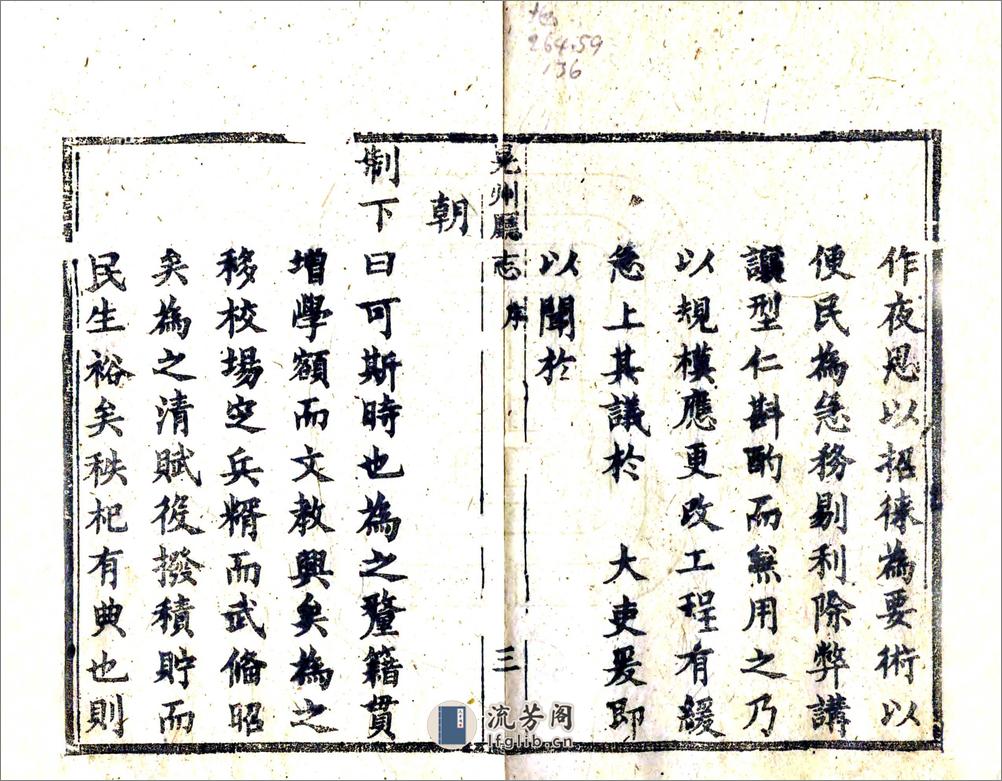 地
264.59
136
作夜思以招徠為要術以
便民為急務剔利除弊講
讓型仁斟酌而無用之乃
以規模應更改工程有緩
急上其議於 大吏爰即
以聞於
晃州廳志 序 三
朝
制下曰可斯時也為之釐籍貫
增學額而文教興矣為之
移校場空兵糈而武俻昭
矣為之清賦役撥積貯而
民生裕矣秩祀有典也則
流芳阁
lfglib.cn